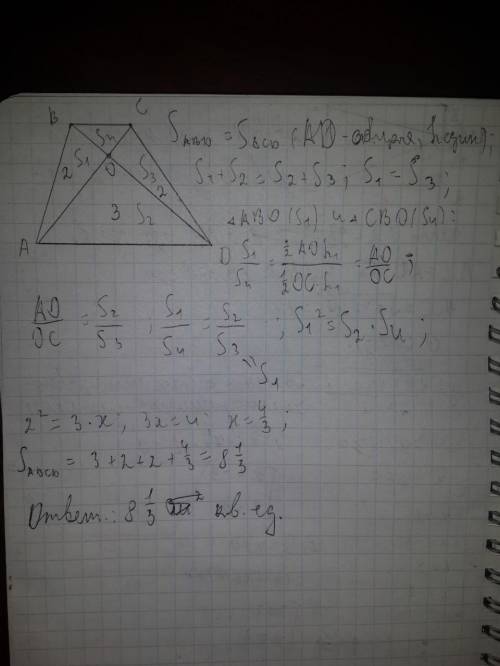 B C
S₄
2 S₁ O S₃ 2
3 S₂
A D
S_ABD = S_BCD (AD - общая, h един);
S₁ + S₂ = S₂ + S₃; S₁ = S₃;
△ABO (S₁) и △CBO (S₄):
S₁/S₄ = (½ AO·h₁)/(½ OC·h₁) = AO/OC;
AO/OC = S₂/S₃; S₁/S₄ = S₂/S₃; S₁² = S₂ · S₄;
S₁
2² = 3·x; 3x = 4 x = 4/3;
S_ABCD = 3 + 2 + 2 + 4/3 = 8 1/3
Ответ: 8 1/3 кв. ед.